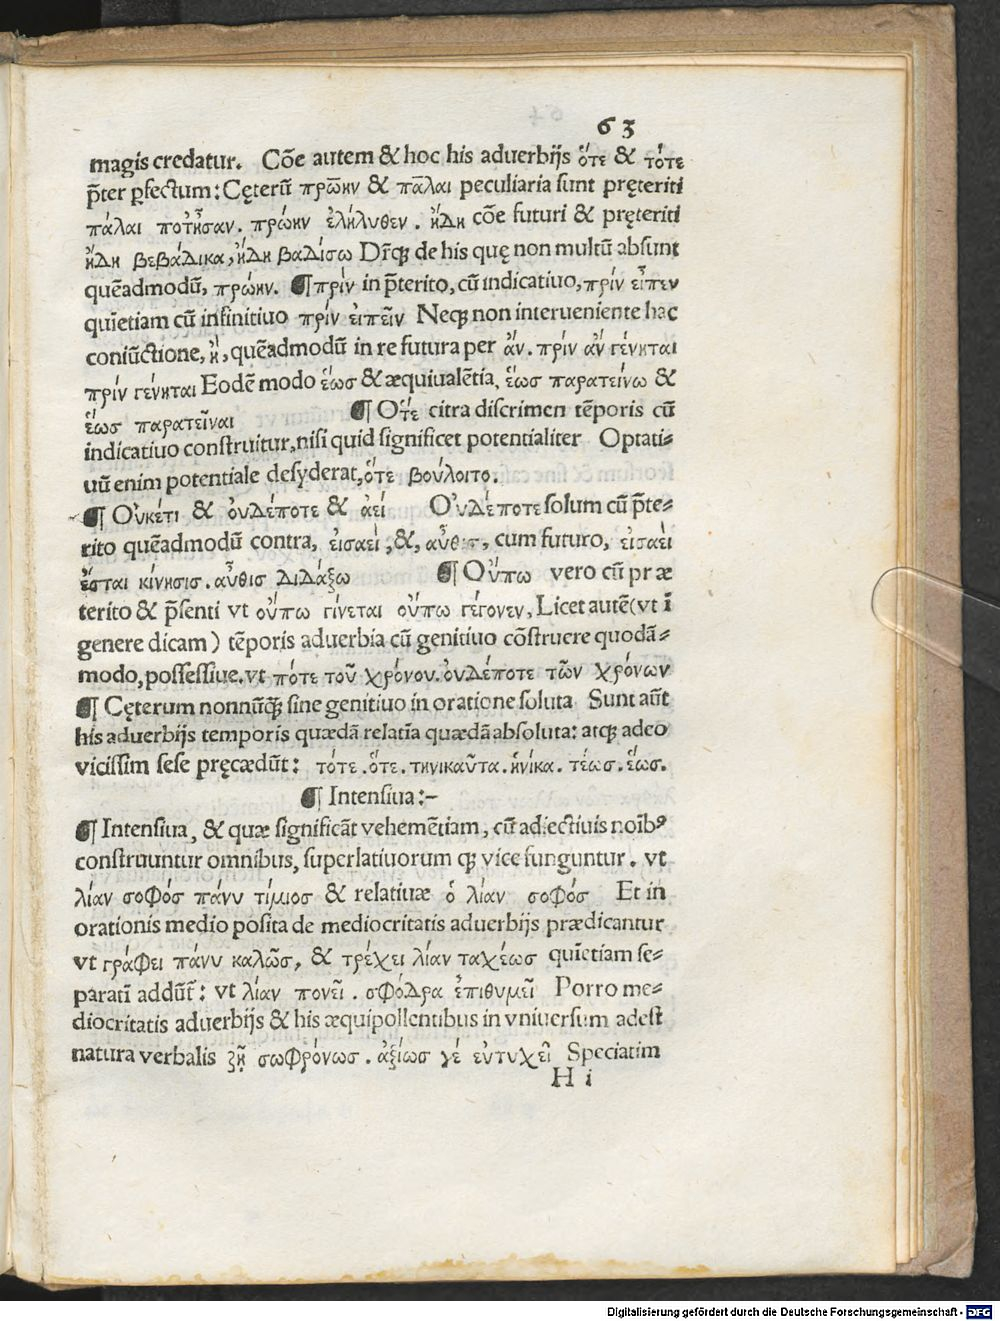 63
magis credatur. Cõe autem & hoc his aduerbijs ὅτε & τότε
p̃ter ꝑfectum: Cęterũ πρώην & πάλαι peculiaria sunt pręteriti
πάλαι ποτ̓ἦσαν. πρώην ἐλήλυθεν. ἤδη cõe futuri & pręteriti
ἤδη βεβάδικα, ἤδη βαδίσω Dr̃qꝫ de his quę non multũ absunt
quẽadmodũ, πρώην. ¶ πρίν in p̃terito, cũ indicatiuo, πρίν εἶπεν
quĩetiam cũ infinitiuo πρίν ἐιπεῖν Neqꝫ non interueniente hac
coniũctione, ἤ, quẽadmodũ in re futura per ἄν. πρίν αν γένηται
πρίν γένηται Eodẽ modo ἑώσ & æquiualẽtia, ἕωσ παρατείνω &
ἕωσ παρατεῖναι ¶ Οτε citra discrimen tẽporis cũ
indicatiuo construitur, nisi quid significet potentialiter Optati-
uũ enim potentiale desyderat, ὅτε βούλοιτο.
¶ Οὐκέτι & ὀυδέποτε & ἀεί Οὐδέποτε solum cũ p̃te-
rito quẽadmodũ contra, ἐισαεὶ, &, αὖθισ, cum futuro, ἐισαεὶ
ἔσται κίνησισ. αὖθισ διδάξω ¶ Οὔπω vero cũ præ
terito & p̃senti vt οὔπω γίνεται οὔπω γέγονεν, Licet autẽ (vt ĩ
genere dicam) tẽporis aduerbia cũ genitiuo cõstruere quodã-
modo, possessiue. vt πότε τοῦ χρόνου. ὀυδέποτε τῶν χρόνων
¶ Cęterum nonnũqꝫ sine genitiuo in oratione soluta Sunt aũt
his aduerbijs temporis quædã relatĩa quædã absoluta: atqꝫ adeo
vicissim sese pręcædũt: τότε. ὅτε. τηνικαῦτα. ἡνίκα. τέωσ. ἕωσ.
¶ Intensiua:-
¶ Intensiua, & quæ significãt vehemẽtiam, cũ adiectiuis noĩbꝰ
construuntur omnibus, superlatiuorum qꝫ vice funguntur. vt
λίαν σοφόσ πάνυ τίμιοσ & relatiuæ ὁ λίαν σοφόσ Et in
orationis medio posita de mediocritatis aduerbijs prædicantur
vt γράφει πάνυ καλῶσ, & τρέχει λίαν ταχέωσ quĩetiam se-
paratĩ addũt̃: vt λίαν πονεῖ. σφόδρα ἐπιθυμεῖ Porro me-
diocritatis aduerbijs & his æquipollentibus in vniuersum adest
natura verbalis ζῇ σωφρόνωσ. ἀξίωσ γέ ἐυτυχεῖ Speciatim
H i
Digitalisierung gefördert durch die Deutsche Forschungsgemeinschaft - DFG